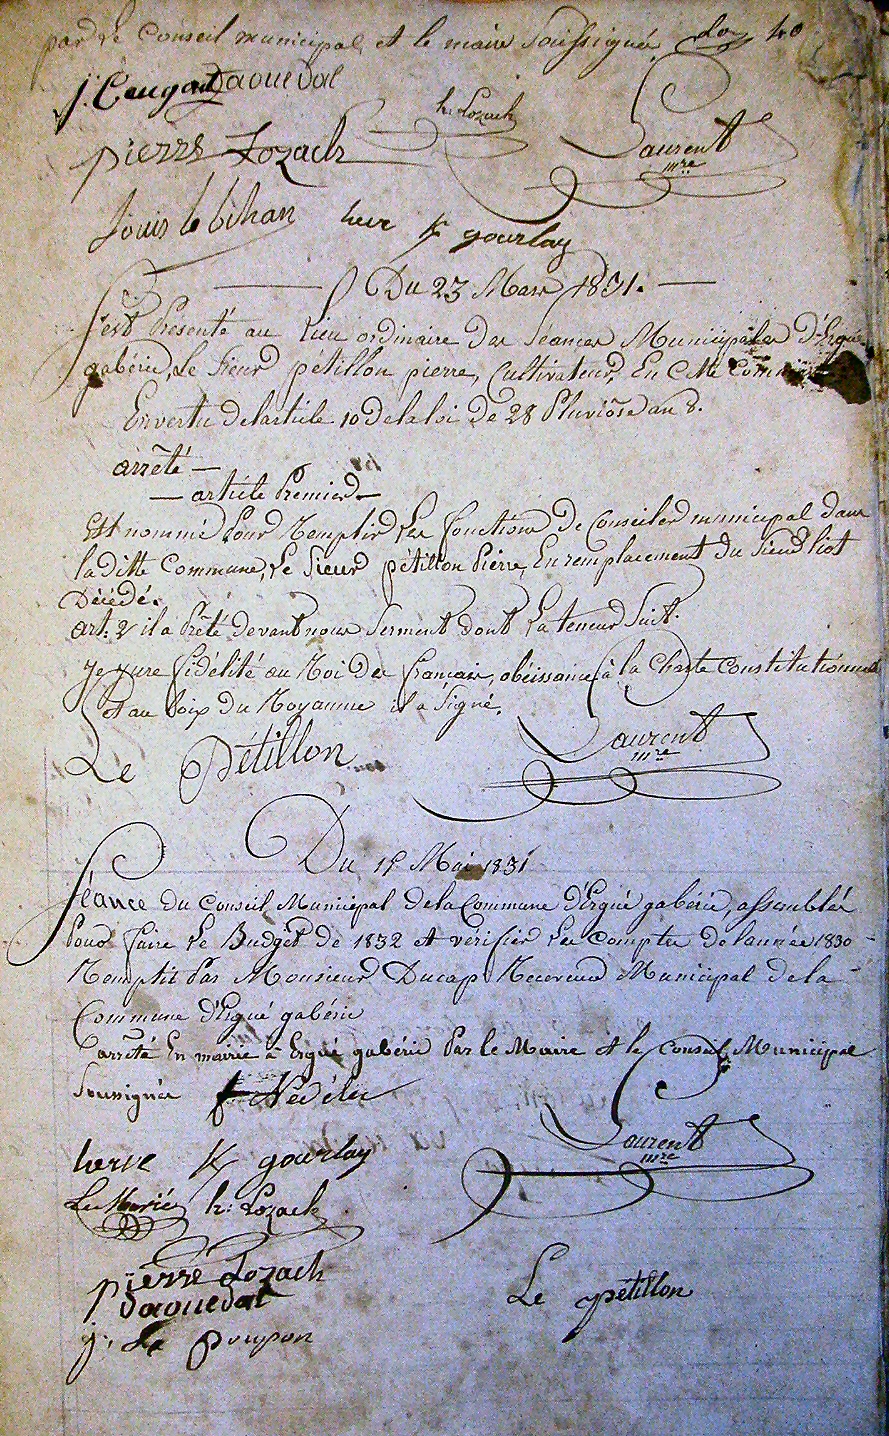 par le Conseil municipal, et le maire soussigné
40
j. Ceugart Daouedal
h. Lozach
pierre Lozach
Laurent
mre
Louis le bihan herve K gourlay
Du 23 Mars 1831.
S'est Présenté au Lieu ordinaire des Séances Municipales D'Ergué
gabéric, Le Sieur pétillon pierre, Cultivateur, En Cette Commune
En vertu de larticle 10 de la loi de 28 Pluviôse an 8.
arrêté
article Premier
Est nommé Pour Remplir Les fonctions De Conseiler municipal dans
la ditte Commune, Le Sieur pétillon Pierre, En remplacement du Sieur liot
Décédé.
art. 2 il a Prêté devant nous Serment dont La teneur Suit.
Je jure fidélité au Roi des français, obéissance à la Charte Constitutionnelle
Et au Loix du Royaume il a Signé.
Le Pétillon Laurent
mre
Du 15 Mai 1831
Séance du Conseil Municipal de la Commune d'Ergué gabéric, assemblés
Pour faire Le Budget de 1832 et vérifier Les Comptes de l'année 1830
Remplit Par Monsieur Ducap Receveur Municipal de la
Commune d'Ergué gabéric
arrêté En mairie à Ergué gabéric Par le Maire et le Conseil Municipal
Soussignés Nédélec
Laurent
mre
herve K gourlay
h: Lozach
pierre Lozach
Daouedal Le pétillon
j. Le poupon